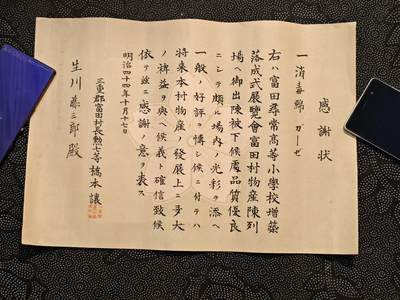 感謝状
一消毒綿ガーゼ
右ハ富田尋常高等小學校増築
落成式展覽會富田村物産陳列
場ヘ御出陳被下候處品質優良
ニシテ頗ル場内ノ光彩ヲ添ヘ
一般ノ好評ヲ博シ候ニ付テハ
将来本村物産ノ發展上ニ多大
ノ裨益ヲ與ヘ候義ト確信致候
依テ玆ニ感謝ノ意ヲ表ス
明治四十四年十月十七日
三重郡富田村長勲七等橋本讓
生川恭三郎殿